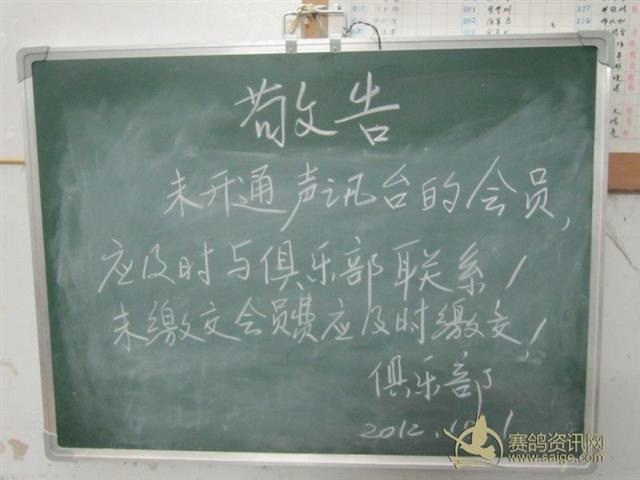 敬告
未开通声讯台的会员,
应及时与俱乐部联系!
未缴交会员费应及时缴交!
俱乐部
赛鸽资讯网
www.saige.com